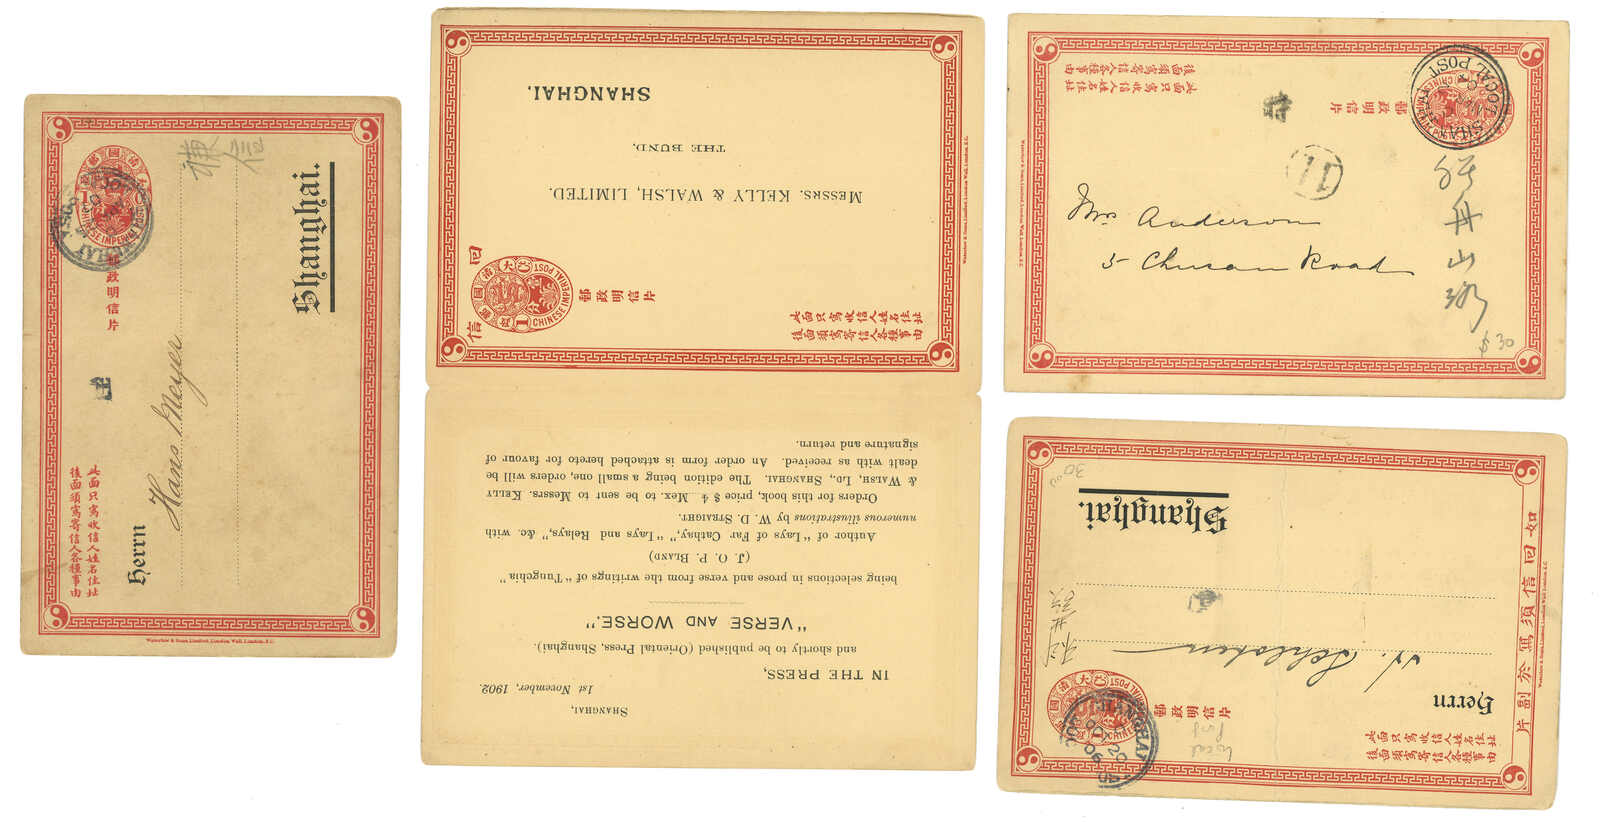 大清國郵政
CHINESE IMPERIAL POST
郵政明信片
Shanghai.
Herrn
Hans Meyer
此面只寫收信人姓名住址
後面須寫寄信人各種事由
Waterlow & Sons Limited, London Wall, London, E.C.
MESSRS. KELLY & WALSH, LIMITED.
THE BUND.
SHANGHAI.
回信
大清國郵政
CHINESE IMPERIAL POST
1
郵政明信片
此面只寫收信人姓名住址
後面須寫寄信人各種事由
Waterlow & Sons Limited, London Wall, London, E.C.
SHANGHAI,
1st November, 1902.
IN THE PRESS,
and shortly to be published (Oriental Press, Shanghai).
"VERSE AND WORSE."
being selections in prose and verse from the writings of "Tungchia"
(J. O. P. BLAND)
Author of "Lays of Far Cathay," "Lays and Relays," &c. with
numerous illustrations by W. D. STRAIGHT.
Orders for this book, price $ 4 Mex. to be sent to Messrs. KELLY
& WALSH, LD., SHANGHAI. The edition being a small one, orders will be
dealt with as received. An order form is attached hereto for favour of
signature and return.
此面只寫收信人姓名住址
後面須寫寄信人各種事由
郵政明信片
LOCAL POST
CHINESE IMPERIAL POST
11
Mrs Anderson
5 Chusan Road
舟山
$30
Waterlow & Sons Limited, London Wall, London, E.C.
如回信須寫於副片
大清國郵政
CHINESE IMPERIAL POST
郵政明信片
SHANGHAI
Herrn
Shanghai.
此面只寫收信人姓名住址
後面須寫寄信人各種事由
Local
Post
30
Waterlow & Sons Limited, London Wall, London, E.C.